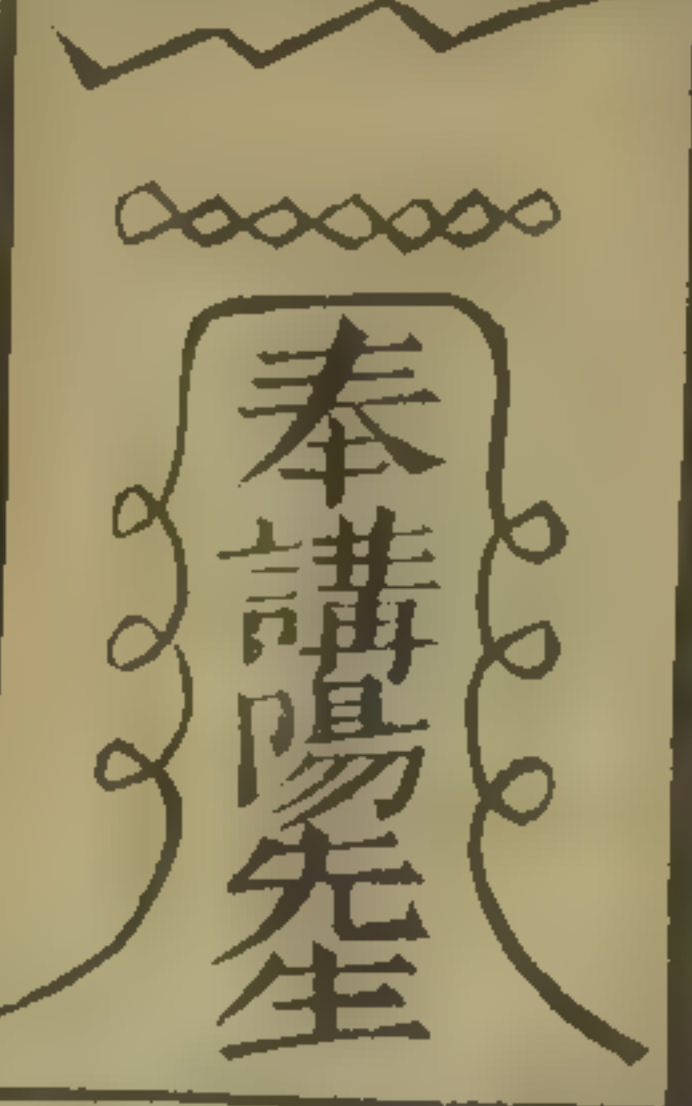 奉講陽先生